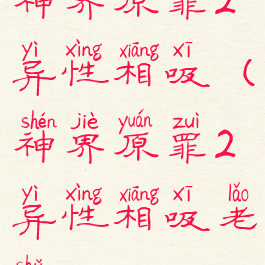 神界原罪2
yì xìng xiāng xī
异性相吸（
shén jiè yuán zuì
神界原罪2
yì xìng xiāng xī lǎo
异性相吸老
shǔ